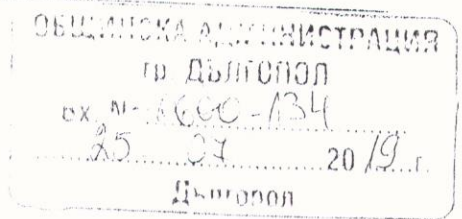 ОБЩИНСКА АДМИНИСТРАЦИЯ
гр. ДЪЛГОПОЛ
вх. № 6600-134
25 07 2019 г.
Дългопол